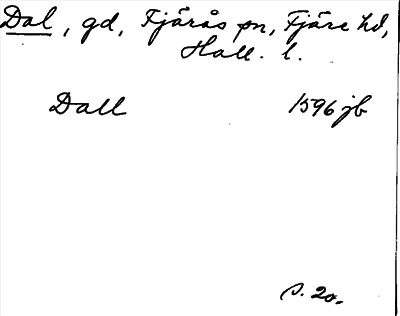 Dal, gd, Fjärås sn, Fjäre hd,
Hall. l.
Dall 1596 jb
s. 20.